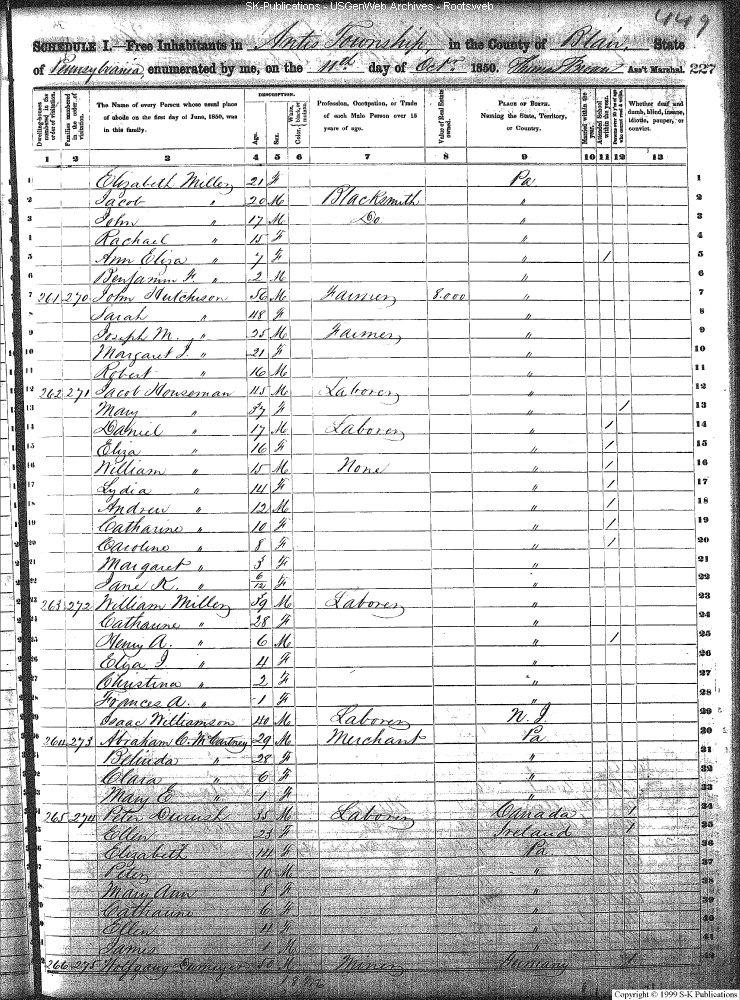 SK-Publications - USGenWeb Archives - Rootsweb
449
SCHEDULE I.—Free Inhabitants in Antis Township, in the County of Blair, State
of Pennsylvania, enumerated by me, on the 11th day of Octr. 1850. Ass't Marshal. 227
Dwelling-houses numbered in the order of visitation.
Families numbered in the order of visitation.
The Name of every Person whose usual place of abode on the first day of June, 1850, was in this family.
DESCRIPTION.
Age.
Sex.
Color,
Profession, Occupation, or Trade of each Male Person over 15 years of age.
Value of Real Estate owned.
PLACE OF BIRTH. Naming the State, Territory, or Country.
Married within the year.
Attended School within the year.
Whether deaf and dumb, blind, insane, idiotic, pauper, or convict.
1 2 3 4 5 6 7 8 9 10 11 12 13
1 Elizabeth Miller 21 F Pa 1
2 Jacob " 20 M Blacksmith " 2
3 John " 17 M Do " 3
4 Rachael " 15 F " 4
5 Ann Eliza " 7 F " / 5
6 Benjamin F. " 2 M " 6
7 261 270 John Hutchison 56 M Farmer 8.000 " 7
8 Sarah " 48 F " 8
9 Joseph M. " 25 M Farmer " 9
10 Margaret J. " 21 F " 10
11 Robert " 16 M " 11
12 262 271 Jacob Houseman 45 M Laborer " 12
13 Mary " 37 F " / 13
14 Daniel " 17 M Laborer " / 14
15 Eliza " 16 F " / 15
16 William " 15 M None " / 16
17 Lydia " 14 F " / 17
18 Andrew " 12 M " / 18
19 Catharine " 10 F " / 19
20 Caroline " 8 F " / 20
21 Margaret " 3 F " 21
22 Jane K. " 6/12 F " 22
23 263 272 William Miller 39 M Laborer " 23
24 Catharine " 28 F " 24
25 Henry A. " 6 M " / 25
26 Eliza J. " 4 F " 26
27 Christina " 2 F " 27
28 Frances A. " 1 F " 28
29 Isaac Williamson 40 M Laborer N. J. 29
30 264 273 Abraham C. McCartney 29 M Merchant Pa 30
31 Belinda " 28 F " 31
32 Clara " 6 F " 32
33 Mary E. " 1 F " 33
34 265 274 Peter 35 M Laborer Canada / 34
35 Ellen 23 F Ireland / 35
36 Elizabeth 14 F Pa 36
37 Peter 10 M " 37
38 Mary Ann 8 F " 38
39 Catharine 6 F " 39
40 Ellen 4 F " 40
41 James 1 M " 41
42 266 275 Wolfgang 50 M Miner Germany / 42
Copyright © 1999 S-K Publications